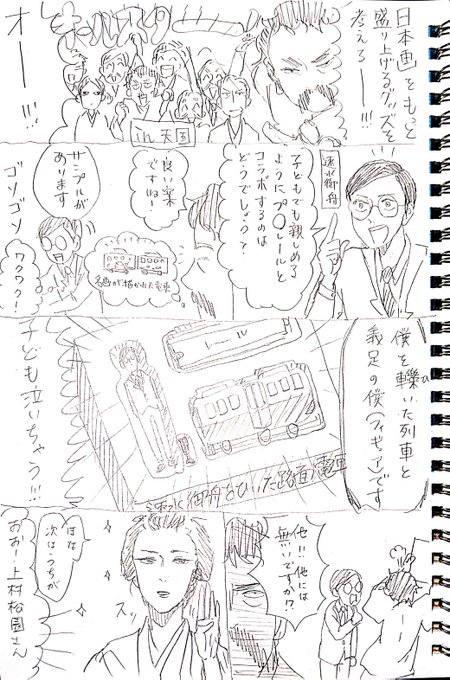 日本画をもっと
盛り上げるグッズを
考えろー!!!
オールスター
in天国
オーーー!!!
速水御舟
子どもでも親しめる
ようにプ○レールと
コラボするのは
どうでしょう?
良い案
ですね!
名画が描かれた電車
サンプルが
あります
ゴソゴソ
ワクワク!
僕を轢いた列車と
義足の僕(フィギュア)です
レール
速水御舟をひいた路面電車
子ども泣いちゃう!!!
他!!他には
無いですか!?
スッ
ほな
次はうちが
おおー上村松園さん